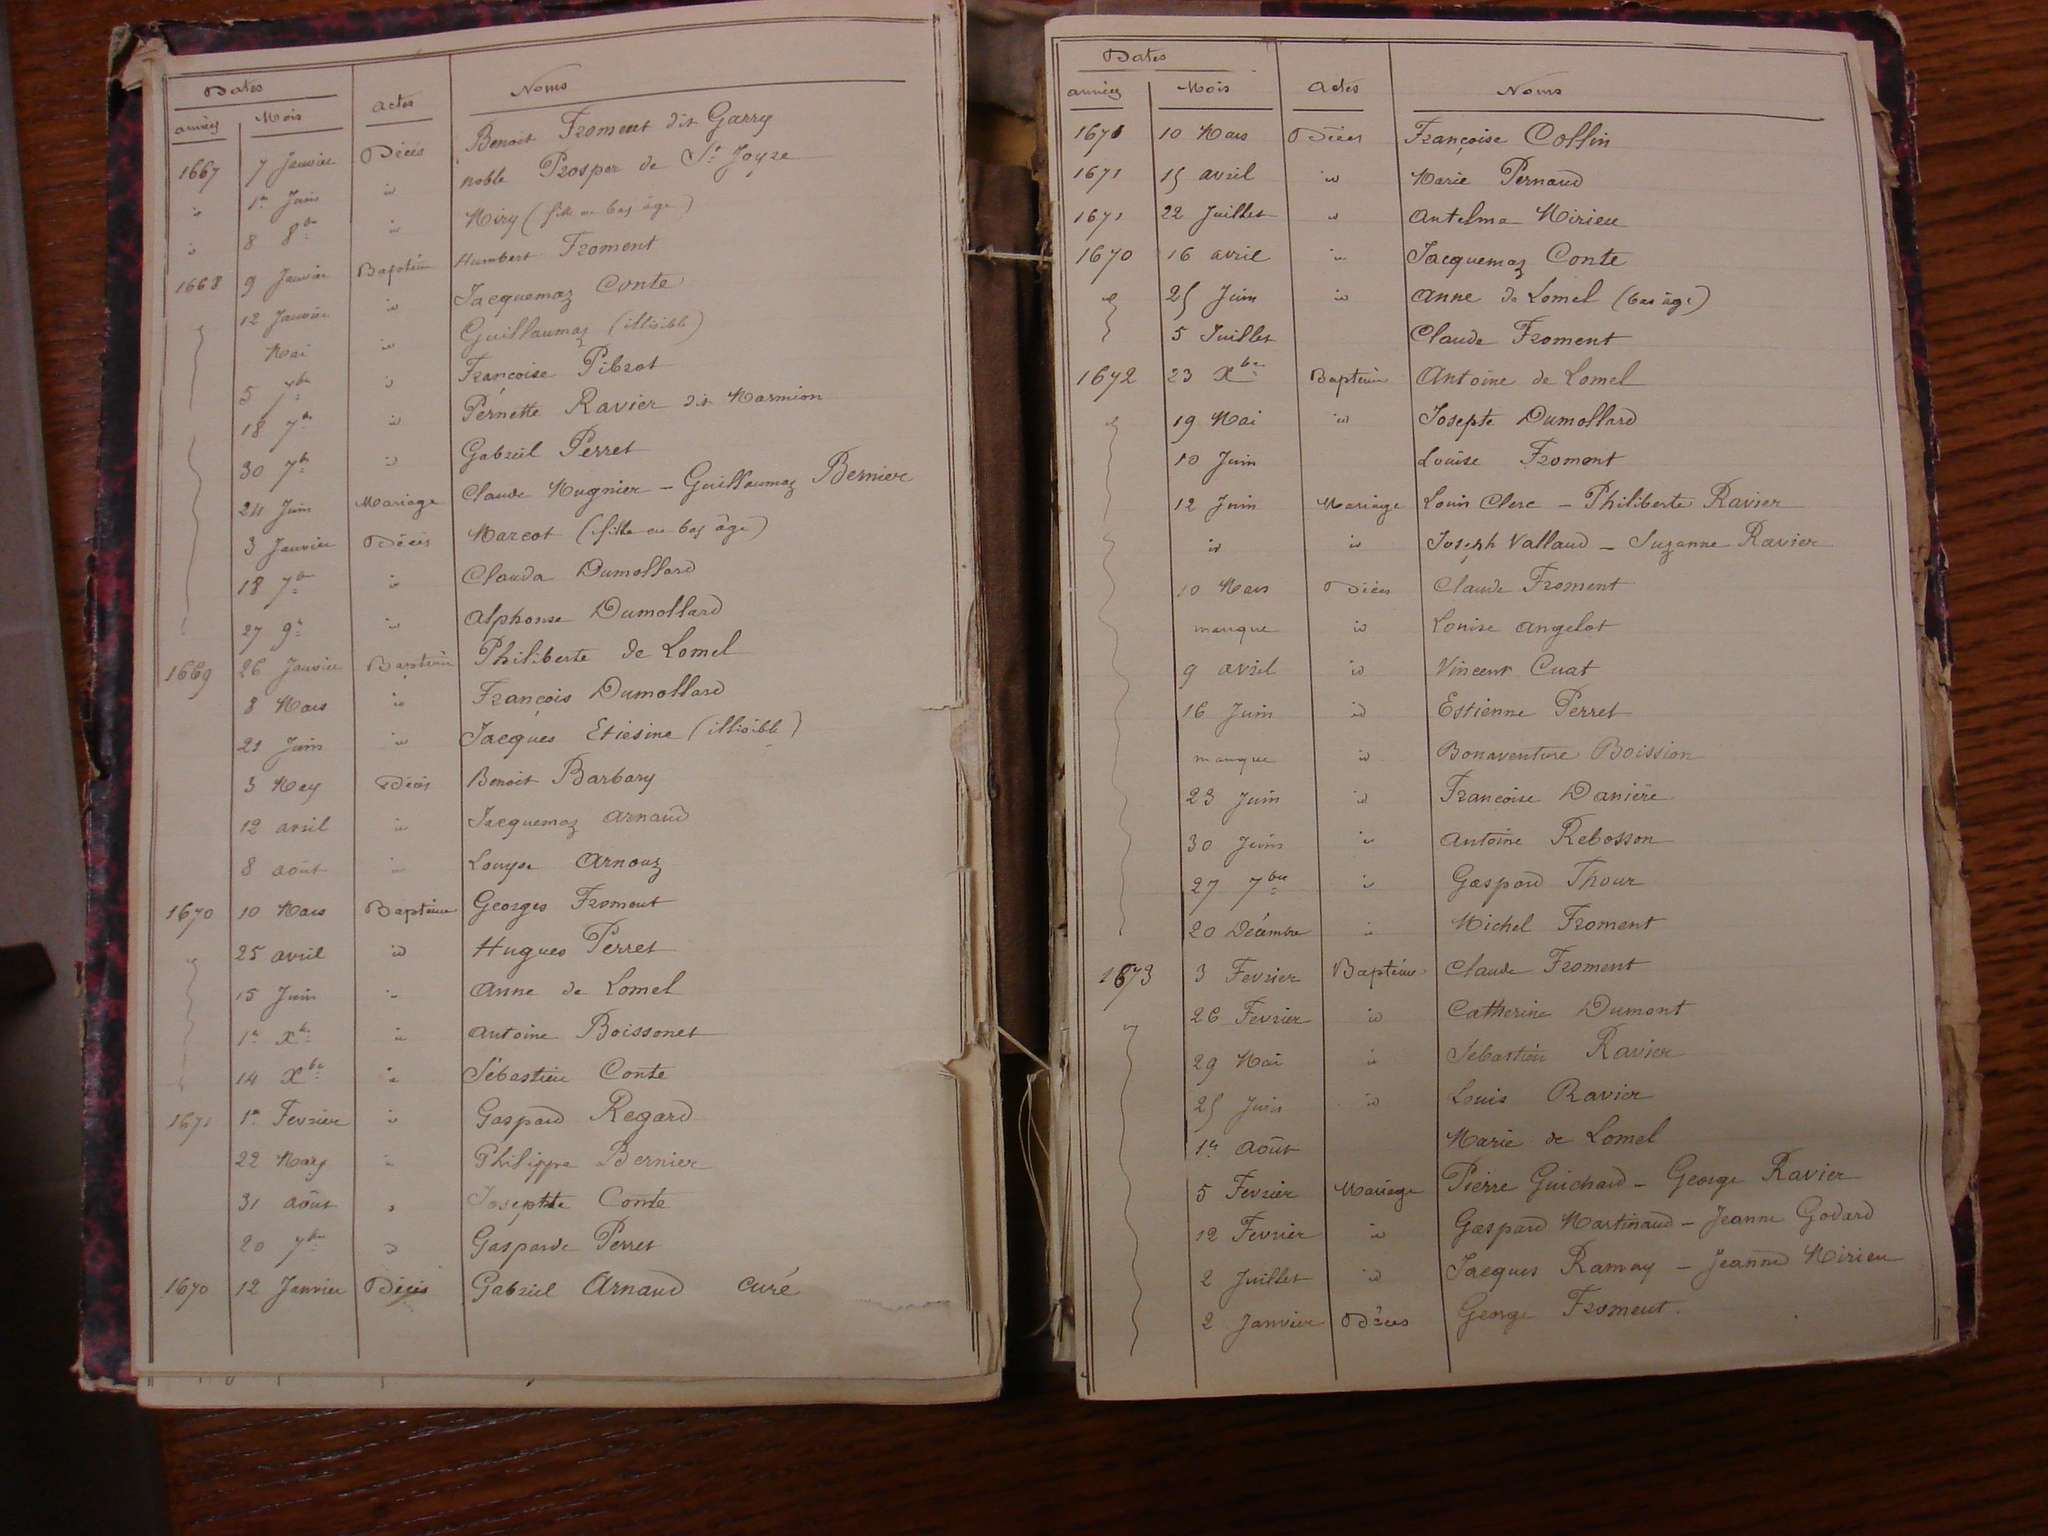 Dates
années Mois actes Noms
1667 7 Janvier Décès Benoit Froment dit Garry
id 1er Juin id noble Prosper de St Joyre
id 8 8bre id Miry (fille en bas âge)
1668 9 Janvier Baptême Humbert Froment
12 Janvier id Jacquemaz Conte
Mai id Guillaumaz (illisible)
5 7bre id Françoise Pibrot
18 7bre id Pernette Ravier dit Marmion
30 7bre id Gabriel Perret
24 Juin Mariage Claude Mugnier - Guillaumaz Bernier
3 Janvier Décès Marcot (fille en bas âge)
18 7bre id Clauda Dumollard
27 9re id Alphonse Dumollard
1669 26 Janvier Baptême Philiberte de Lomel
8 Mars id François Dumollard
21 Juin id Jacques (illisible)
3 May Décès Benoit Barbary
12 avril id Jacquemaz Arnaud
8 août id Louyse Arnouz
1670 10 Mars Baptême Georges Froment
25 avril id Hugues Perret
15 Juin id Anne de Lomel
1er Xbre id Antoine Boissonet
14 Xbre id Sébastien Conte
1671 1er Fevrier id Gaspard Regard
22 Mars id Philippe Bernier
31 août id Josephte Conte
20 7bre id Gasparde Perret
1670 12 Janvier Décès Gabriel Arnaud curé
Dates
années Mois actes Noms
1671 10 Mars Décès Françoise Collin
1671 15 avril id Marie Pernaud
1671 22 Juillet id Antelma Mirieu
1670 16 avril id Jacquemaz Conte
id 25 Juin id Anne de Lomel (bas âge)
5 Juillet Claude Froment
1672 23 Xbre Baptême Antoine de Lomel
id 19 Mai id Josepte Dumollard
10 Juin Louise Froment
12 Juin Mariage Louis Clerc - Philiberte Ravier
id id Joseph Vallaud - Suzanne Ravier
10 Mars Décès Claude Froment
manque id Louise Angelot
9 avril id Vincent Cuat
16 Juin id Estienne Perret
manque id Bonaventure Boission
23 Juin id Françoise Danière
30 Juin id Antoine Rebosson
27 7bre id Gaspard Thour
20 Décembre id Michel Froment
1673 3 Fevrier Baptême Claude Froment
26 Fevrier id Catherine Dumont
29 Mai id Sébastien Ravier
25 Juin id Louis Ravier
1er Août Marie de Lomel
5 Fevrier Mariage Pierre Guichard - George Ravier
12 Fevrier id Gaspard Martinaud - Jeanne Godard
2 Juillet id Jacques Ramay - Jeanne Mirieu
2 Janvier Décès George Froment.